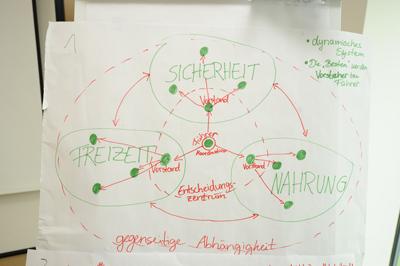 1
• dynamisches
System
• Die "Besten" werden
Vorsteher bzw.
Führer
SICHERHEIT
Vorstand
Führer
Koordination
FREIZEIT
Vorstand
Vorstand
NAHRUNG
Entscheidungs-
zentrum
gegenseitige Abhängigkeit
2